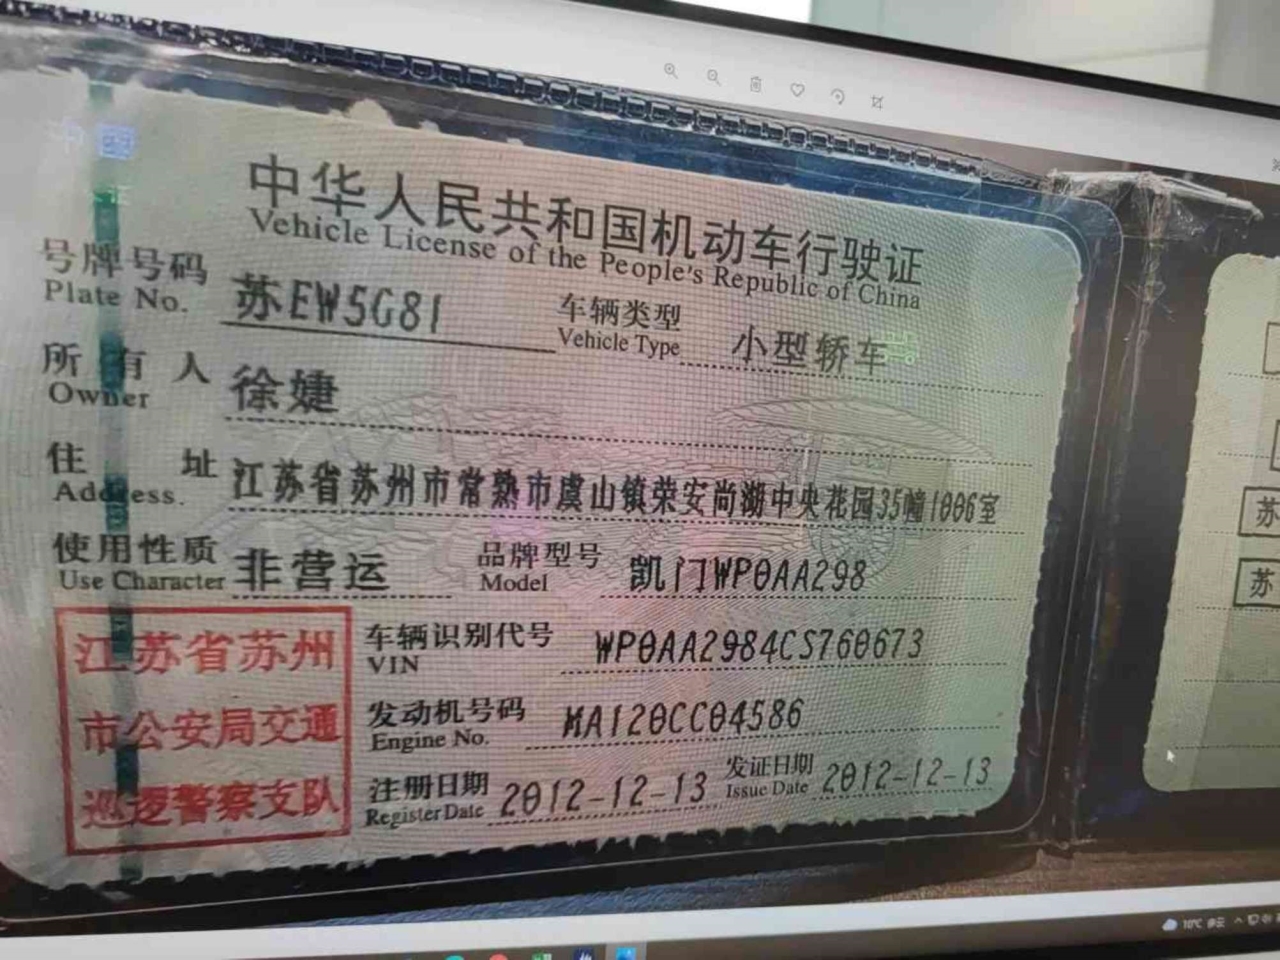 中国
中华人民共和国机动车行驶证
Vehicle License of the People's Republic of China
号牌号码 苏EW5G81 车辆类型 小型轿车
Plate No. Vehicle Type
所有人 徐婕
Owner
住址 江苏省苏州市常熟市虞山镇荣安尚湖中央花园35幢1006室
Address
使用性质 非营运 品牌型号 凯门WP0AA298
Use Character Model
江苏省苏州
市公安局交通
巡逻警察支队
车辆识别代号 WP0AA2984CS760673
VIN
发动机号码 MA120CC04586
Engine No.
注册日期 2012-12-13 发证日期 2012-12-13
Register Date Issue Date
苏
苏
10℃ 多云